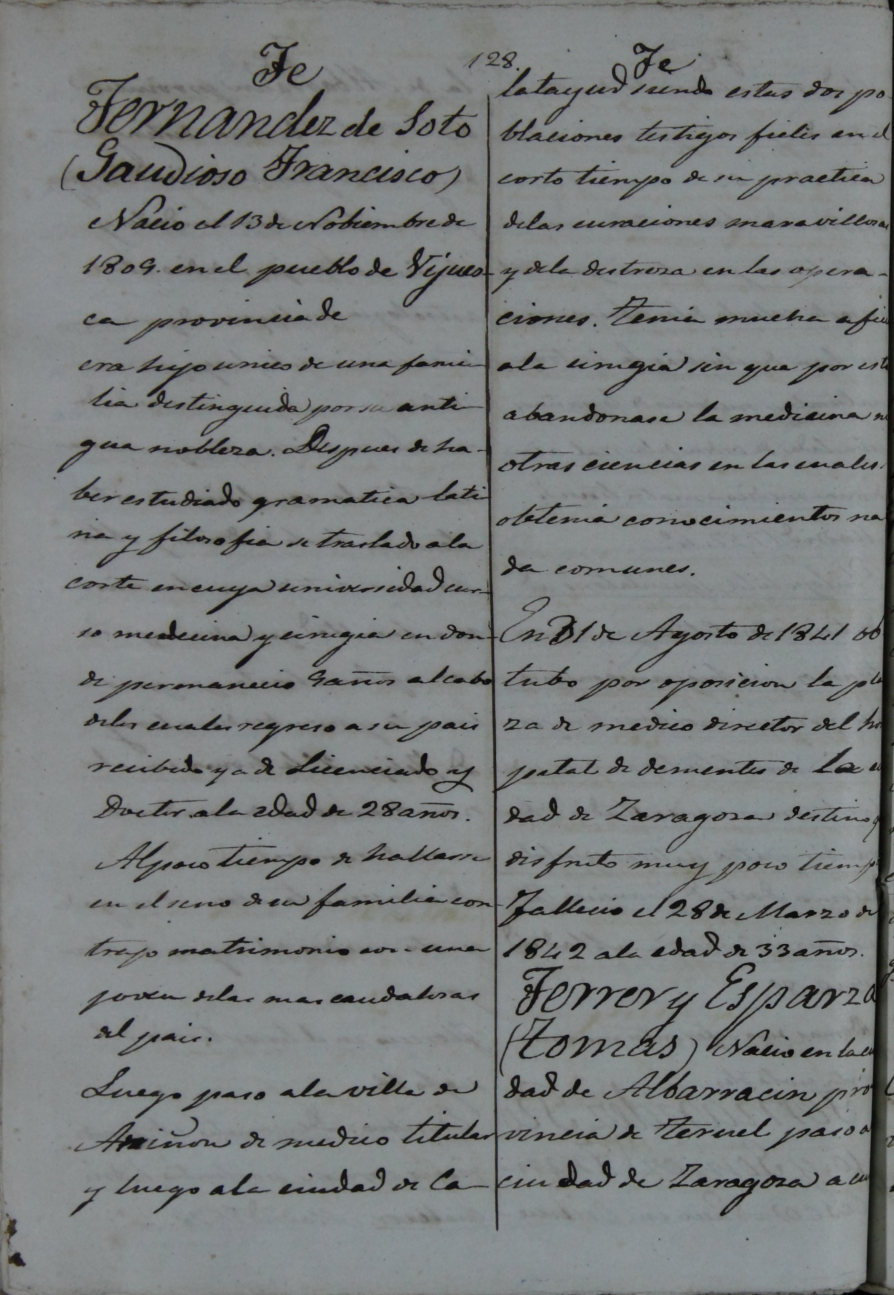 128.
Fe
Fernandez de Soto
(Gaudioso Francisco)
Nacio el 13 de Nobiembre de
1809. en el pueblo de Vijues-
ca provincia de
era hijo unico de una fami-
lia distinguida por su anti-
gua nobleza. Despues de ha-
ber estudiado gramatica lati-
na y filosofia se traslado a la
corte en cuya universidad cur-
so medicina y cirugia en don-
de permanecio 9 años al cabo
delos cuales regreso a su pais
recibido ya de Licenciado y
Doctor a la edad de 28 años.
Al poco tiempo de hallarse
en el seno de su familia con-
trajo matrimonio con una
joven delas mas caudalosas
del pais.
Luego paso a la villa de
Aniñon de medico titular
y luego a la ciudad de Ca-
Fe
latayud siendo estas dos po
blaciones testigos fieles en el
corto tiempo de su practica
delas curaciones maravillosas
y dela destreza en las opera-
ciones. Tenia mucha afi
a la cirugia sin que por esto
abandonase la medicina ni
otras ciencias en las cuales
obtenia conocimientos na
da comunes.
En 31 de Agosto de 1841 ob
tubo por oposicion la pla
za de medico director del hos
pital de dementes de la ciu
dad de Zaragoza destino q
disfruto muy poco tiempo
Fallecio el 28 de Marzo de
1842 a la edad de 33 años.
Ferrer y Esparza
(Tomas) Nacio en la ciu
dad de Albarracin pro
vincia de Teruel paso a
ciudad de Zaragoza a cu